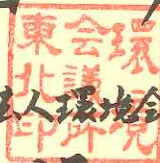 環境
会議所
東北印
法人環境会